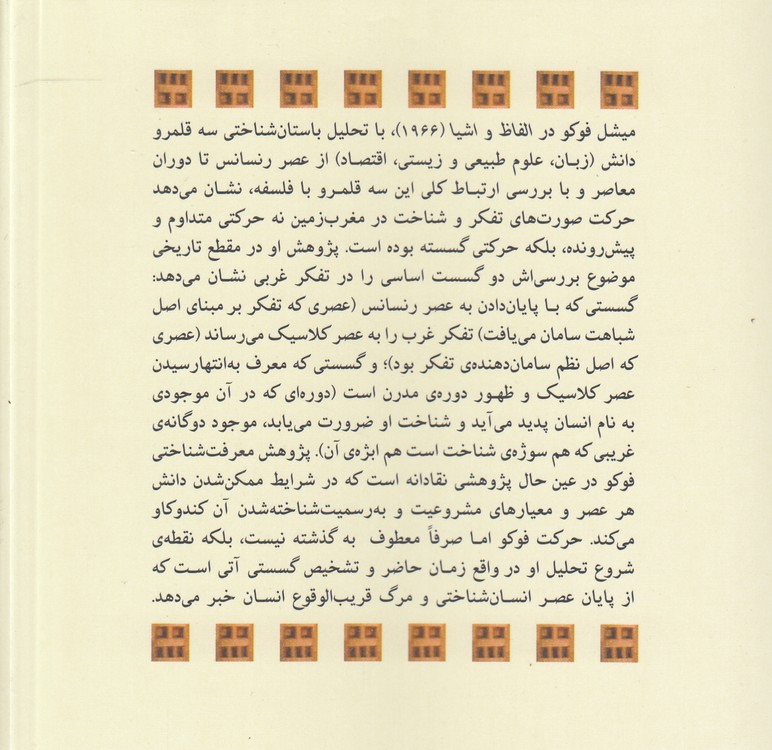 میشل فوکو در الفاظ و اشیا (۱۹۶۶)، با تحلیل باستان‌شناختی سه قلمرو
دانش (زبـان، علوم طبیعی و زیستی، اقتصـاد) از عصر رنسانس تا دوران
معاصر و با بررسی ارتبـاط کلی این سه قلمـرو با فلسفه، نشـان می‌دهد
حرکت صورت‌های تفکر و شناخت در مغرب‌زمین نه حرکتی متداوم و
پیش‌رونده، بلکه حرکتی گسسته بوده است. پژوهش او در مقطع تاریخی
موضوع بررسی‌اش دو گسست اساسی را در تفکر غربی نشـان می‌دهد:
گسستی که بـا پایان‌دادن به عصر رنسانس (عصری که تفکر بر مبنای اصل
شباهت سامان می‌یافت) تفکر غرب را به عصر کلاسیک می‌رساند (عصری
که اصل نظم سامان‌دهنده‌ی تفکر بود)؛ و گسستی که معرف به‌انتهارسیدن
عصر کلاسیک و ظهـور دوره‌ی مدرن است (دوره‌ای که در آن موجودی
به نام انسان پدید می‌آید و شناخت او ضرورت می‌یابد، موجود دوگانه‌ی
غریبی که هم سوژه‌ی شناخت است هم ابژه‌ی آن). پژوهش معرفت‌شناختی
فوکو در عین حال پژوهشی نقادانه است که در شرایط ممکن‌شدن دانش
هر عصر و معیارهای مشروعیت و به‌رسمیت‌شناخته‌شدن آن کندوکاو
می‌کند. حرکت فوکو امـا صرفاً معطوف به گذشته نیست، بلکه نقطه‌ی
شروع تحلیل او در واقع زمـان حاضر و تشخیص گسستی آتی است که
از پایان عصـر انسـان‌شناختی و مرگ قریب‌الوقوع انسـان خبر می‌دهد.